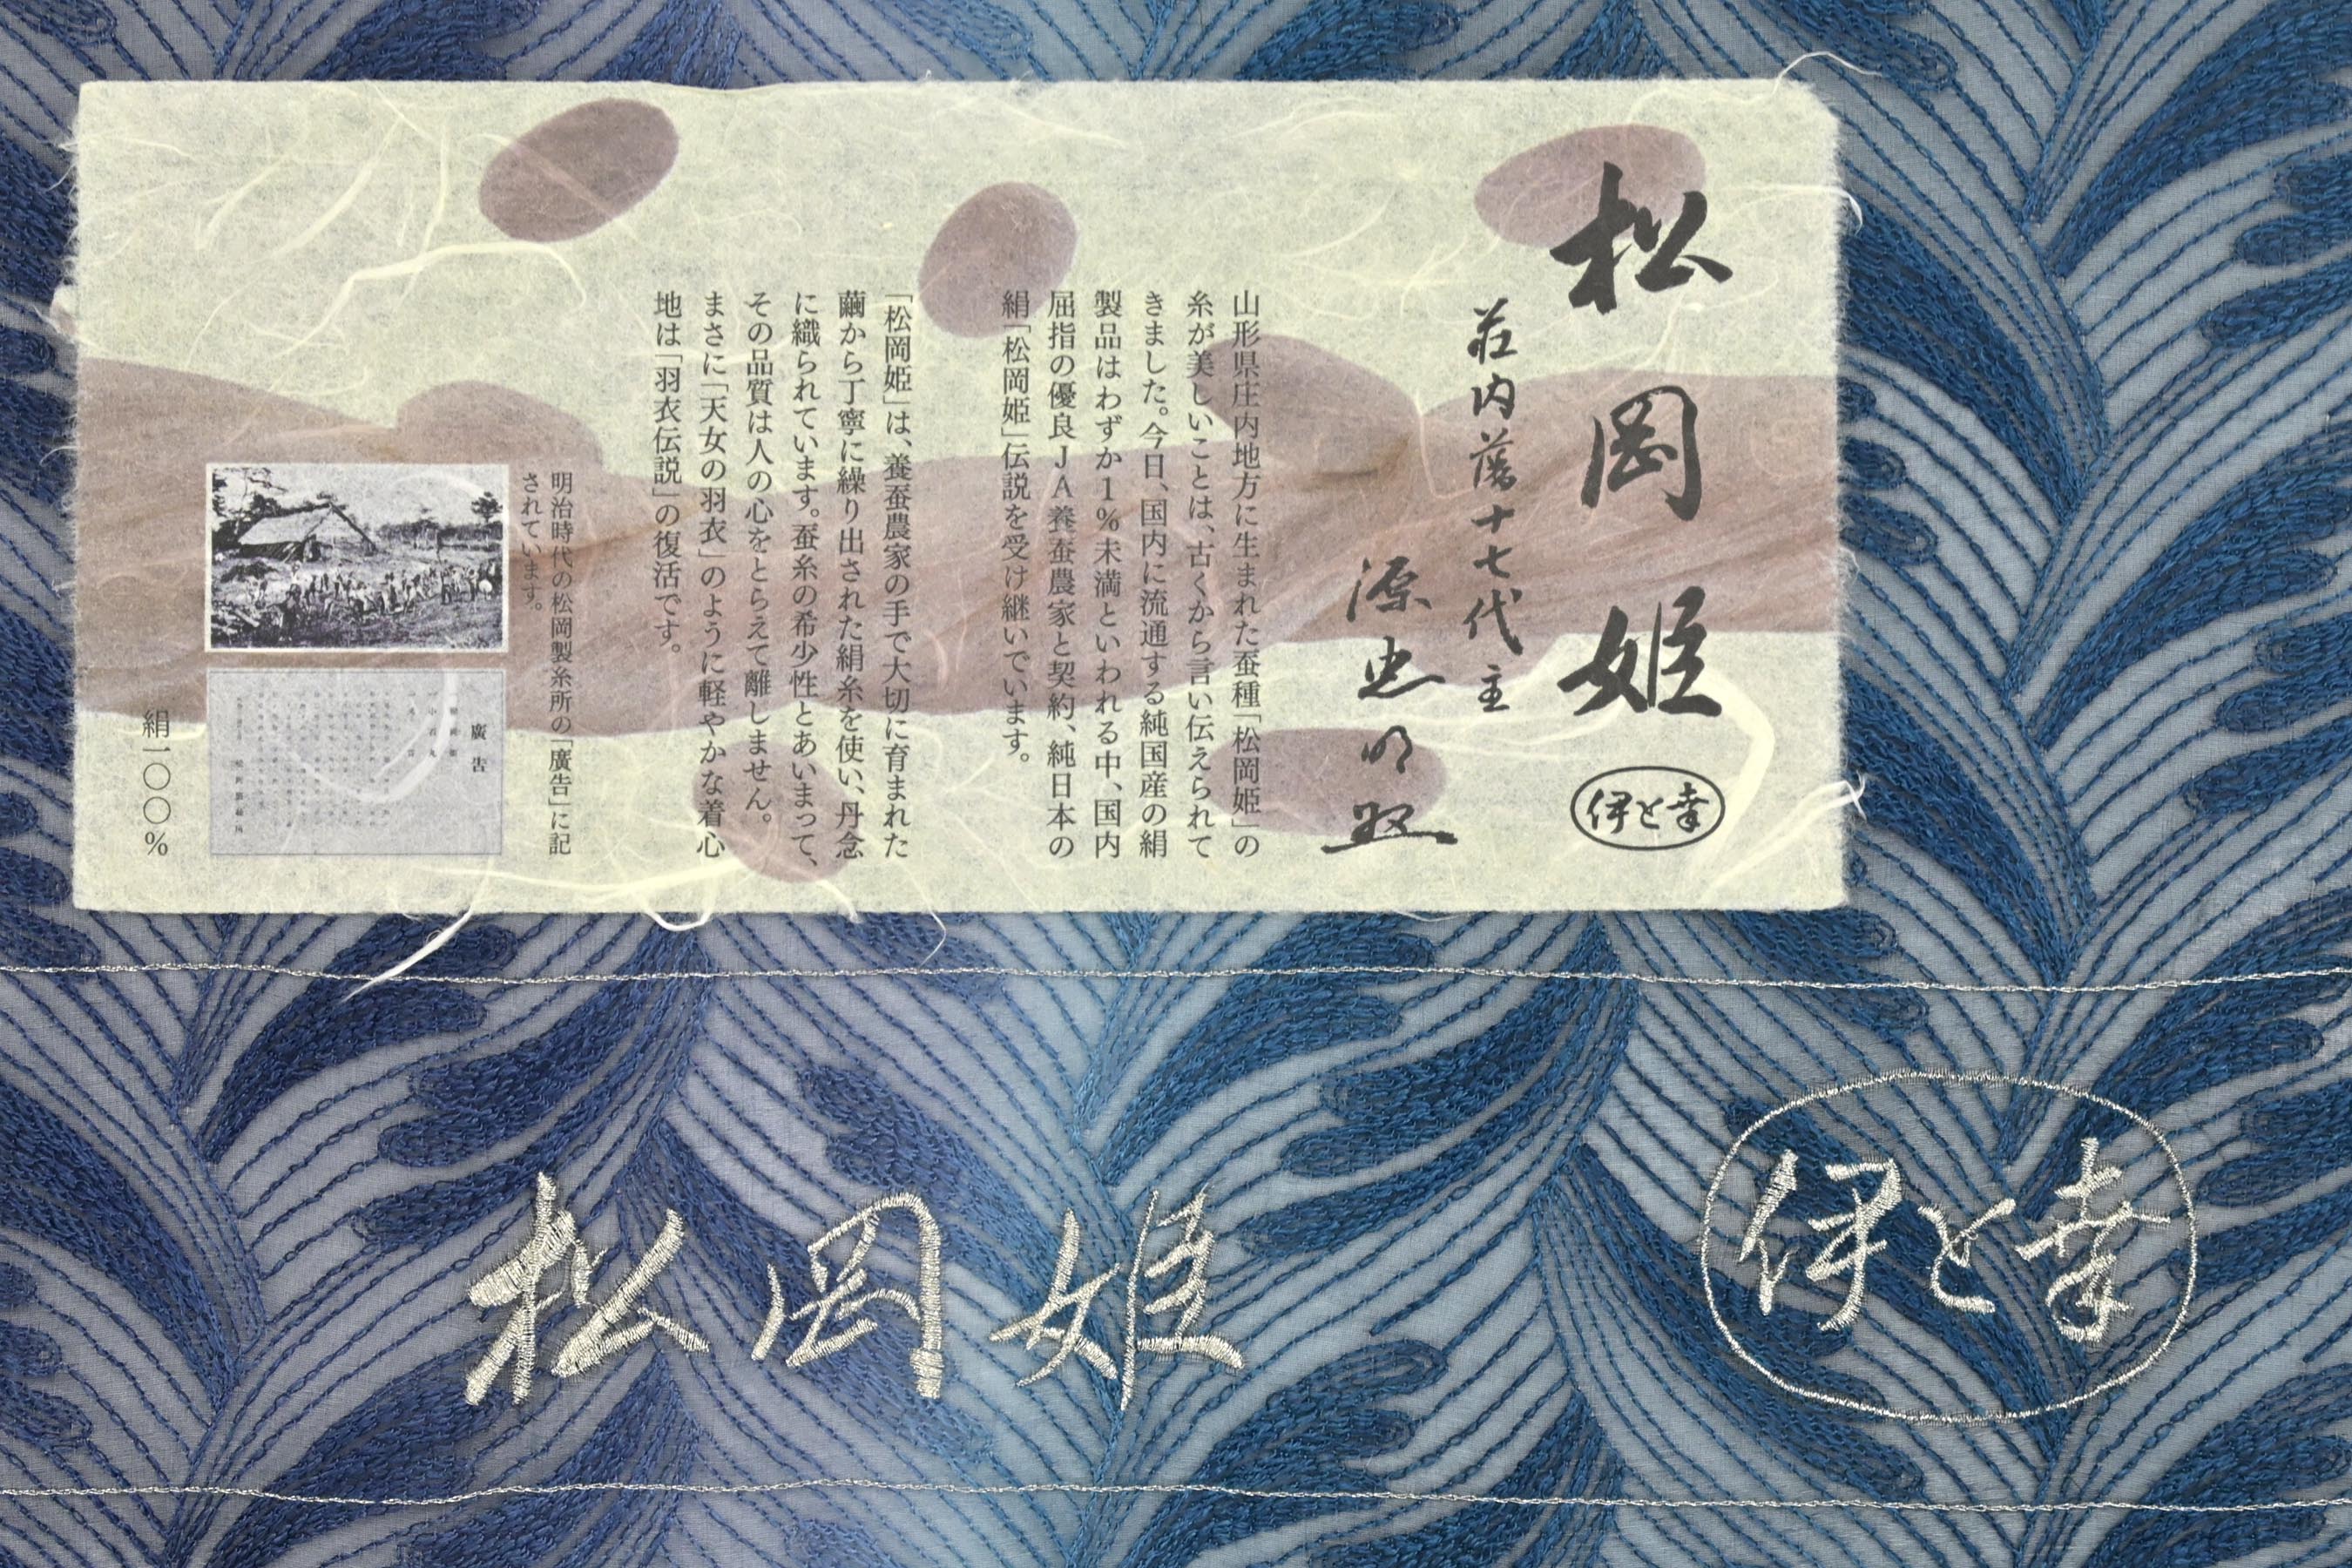 松岡姫
伊と幸
荘内藩十七代主
源忠明
山形県庄内地方に生まれた蚕種「松岡姫」の
糸が美しいことは、古くから言い伝えられて
きました。今日、国内に流通する純国産の絹
製品はわずか1%未満といわれる中、国内
屈指の優良JA養蚕農家と契約、純日本の
絹「松岡姫」伝説を受け継いでいます。
「松岡姫」は、養蚕農家の手で大切に育まれた
繭から丁寧に繰り出された絹糸を使い、丹念
に織られています。蚕糸の希少性とあいまって、
その品質は人の心をとらえて離しません。
まさに「天女の羽衣」のように軽やかな着心
地は「羽衣伝説」の復活です。
明治時代の松岡製糸所の「廣告」に記
されています。
廣告
絹一〇〇%
松岡姫
伊と幸